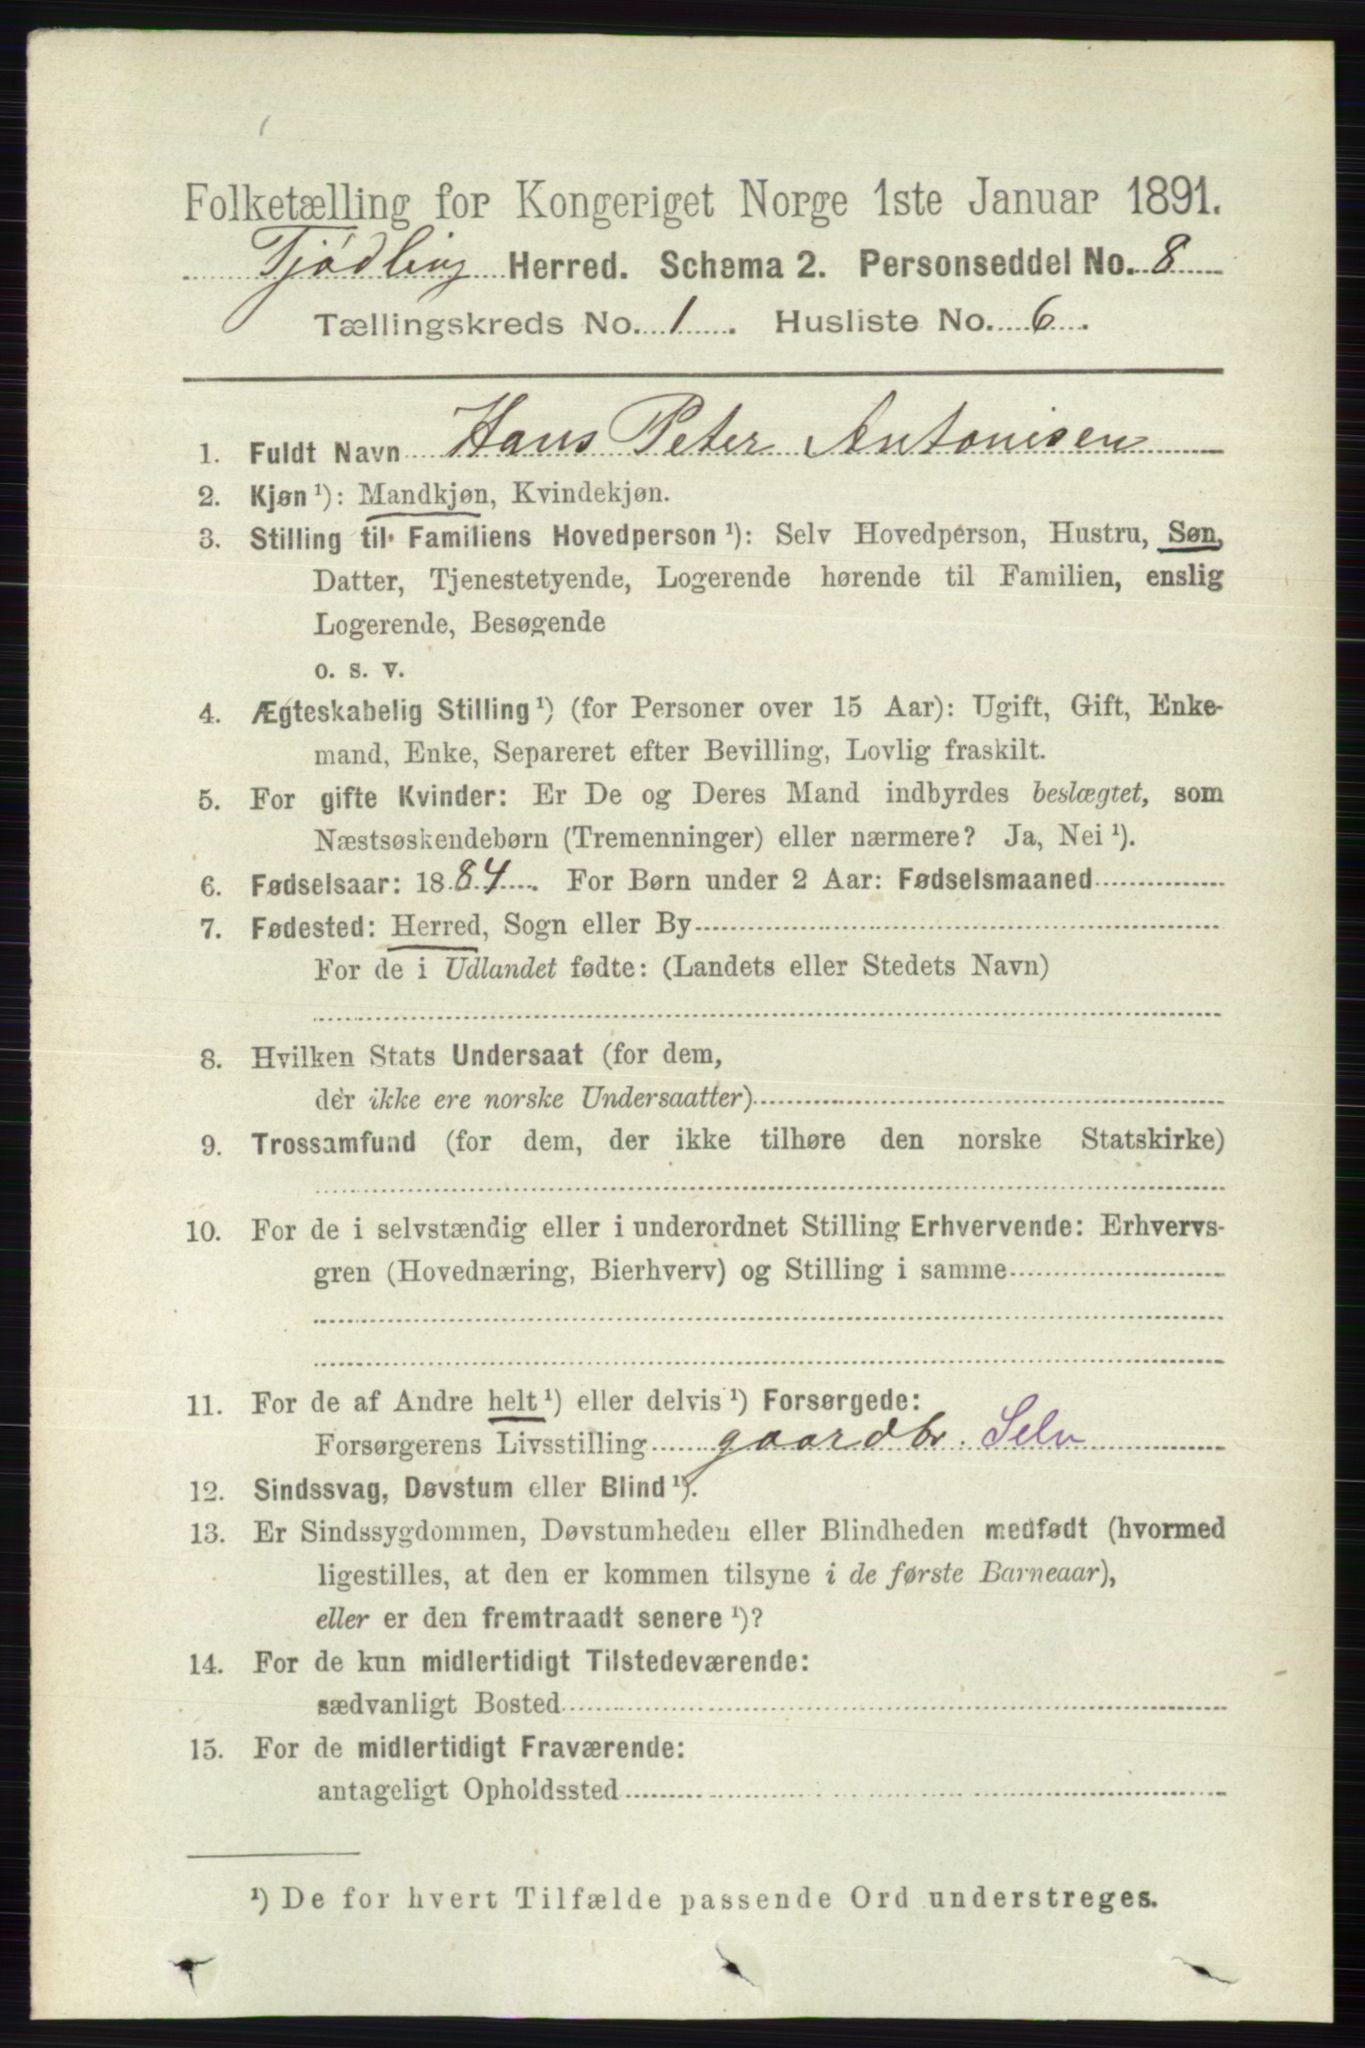 Folketælling for Kongeriget Norge 1ste Januar 1891.
Tjødling Herred. Schema 2. Personseddel No. 8
Tællingskreds No. 1. Husliste No. 6.
1. Fuldt Navn Hans Peter Antonisen
2. Kjøn ¹): Mandkjøn, Kvindekjøn.
3. Stilling til Familiens Hovedperson ¹): Selv Hovedperson, Hustru, Søn,
Datter, Tjenestetyende, Logerende hørende til Familien, enslig
Logerende, Besøgende
o. s. v.
4. Ægteskabelig Stilling ¹) (for Personer over 15 Aar): Ugift, Gift, Enke-
mand, Enke, Separeret efter Bevilling, Lovlig fraskilt.
5. For gifte Kvinder: Er De og Deres Mand indbyrdes beslægtet, som
Næstsøskendebørn (Tremenninger) eller nærmere? Ja, Nei ¹).
6. Fødselsaar: 1884. For Børn under 2 Aar: Fødselsmaaned
7. Fødested: Herred, Sogn eller By
For de i Udlandet fødte: (Landets eller Stedets Navn)
8. Hvilken Stats Undersaat (for dem,
der ikke ere norske Undersaatter)
9. Trossamfund (for dem, der ikke tilhøre den norske Statskirke)
10. For de i selvstændig eller i underordnet Stilling Erhvervende: Erhvervs-
gren (Hovednæring, Bierhverv) og Stilling i samme
11. For de af Andre helt ¹) eller delvis ¹) Forsørgede:
Forsørgerens Livsstilling gaardbr. Selv
12. Sindssvag, Døvstum eller Blind ¹).
13. Er Sindssygdommen, Døvstumheden eller Blindheden medfødt (hvormed
ligestilles, at den er kommen tilsyne i de første Barneaar),
eller er den fremtraadt senere ¹)?
14. For de kun midlertidigt Tilstedeværende:
sædvanligt Bosted
15. For de midlertidigt Fraværende:
antageligt Opholdssted
¹) De for hvert Tilfælde passende Ord understreges.